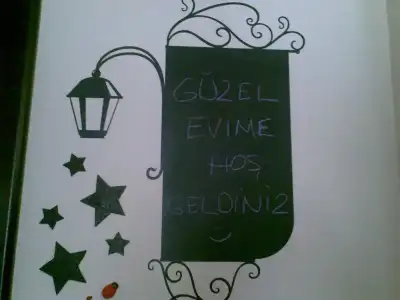 GÜZEL
EVIME
HOŞ
GELDİNİZ